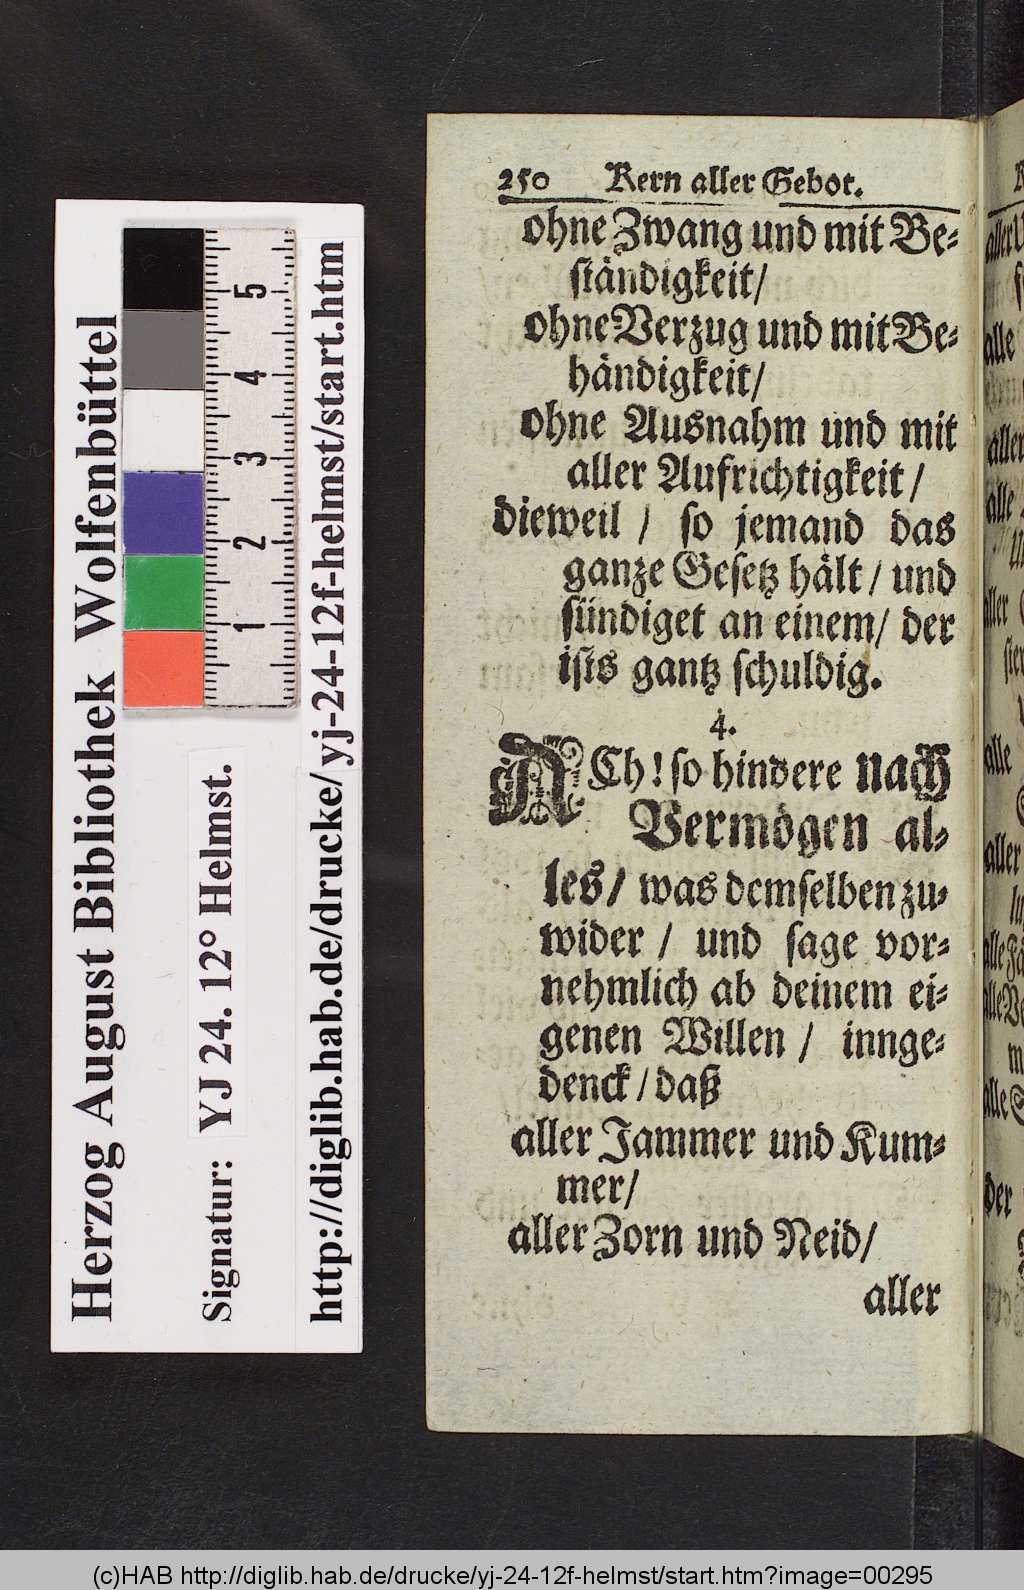 250 Kern aller Gebot.
ohne Zwang und mit Be-
ständigkeit/
ohne Verzug und mit Be-
händigkeit/
ohne Ausnahm und mit
aller Aufrichtigkeit/
dieweil / so jemand das
ganze Gesetz hält / und
sündiget an einem/ der
ists gantz schuldig.
4.
ACh! so hindere nach
Vermögen al-
les/ was demselben zu-
wider / und sage vor-
nehmlich ab deinem ei-
genen Willen / innge-
denck / daß
aller Jammer und Kum-
mer/
aller Zorn und Neid/
aller
Herzog August Bibliothek Wolfenbüttel
Signatur: YJ 24. 12° Helmst.
http://diglib.hab.de/drucke/yj-24-12f-helmst/start.htm
5
4
3
2
1
alle
alle
aller
alle
aller
der
(c)HAB http://diglib.hab.de/drucke/yj-24-12f-helmst/start.htm?image=00295